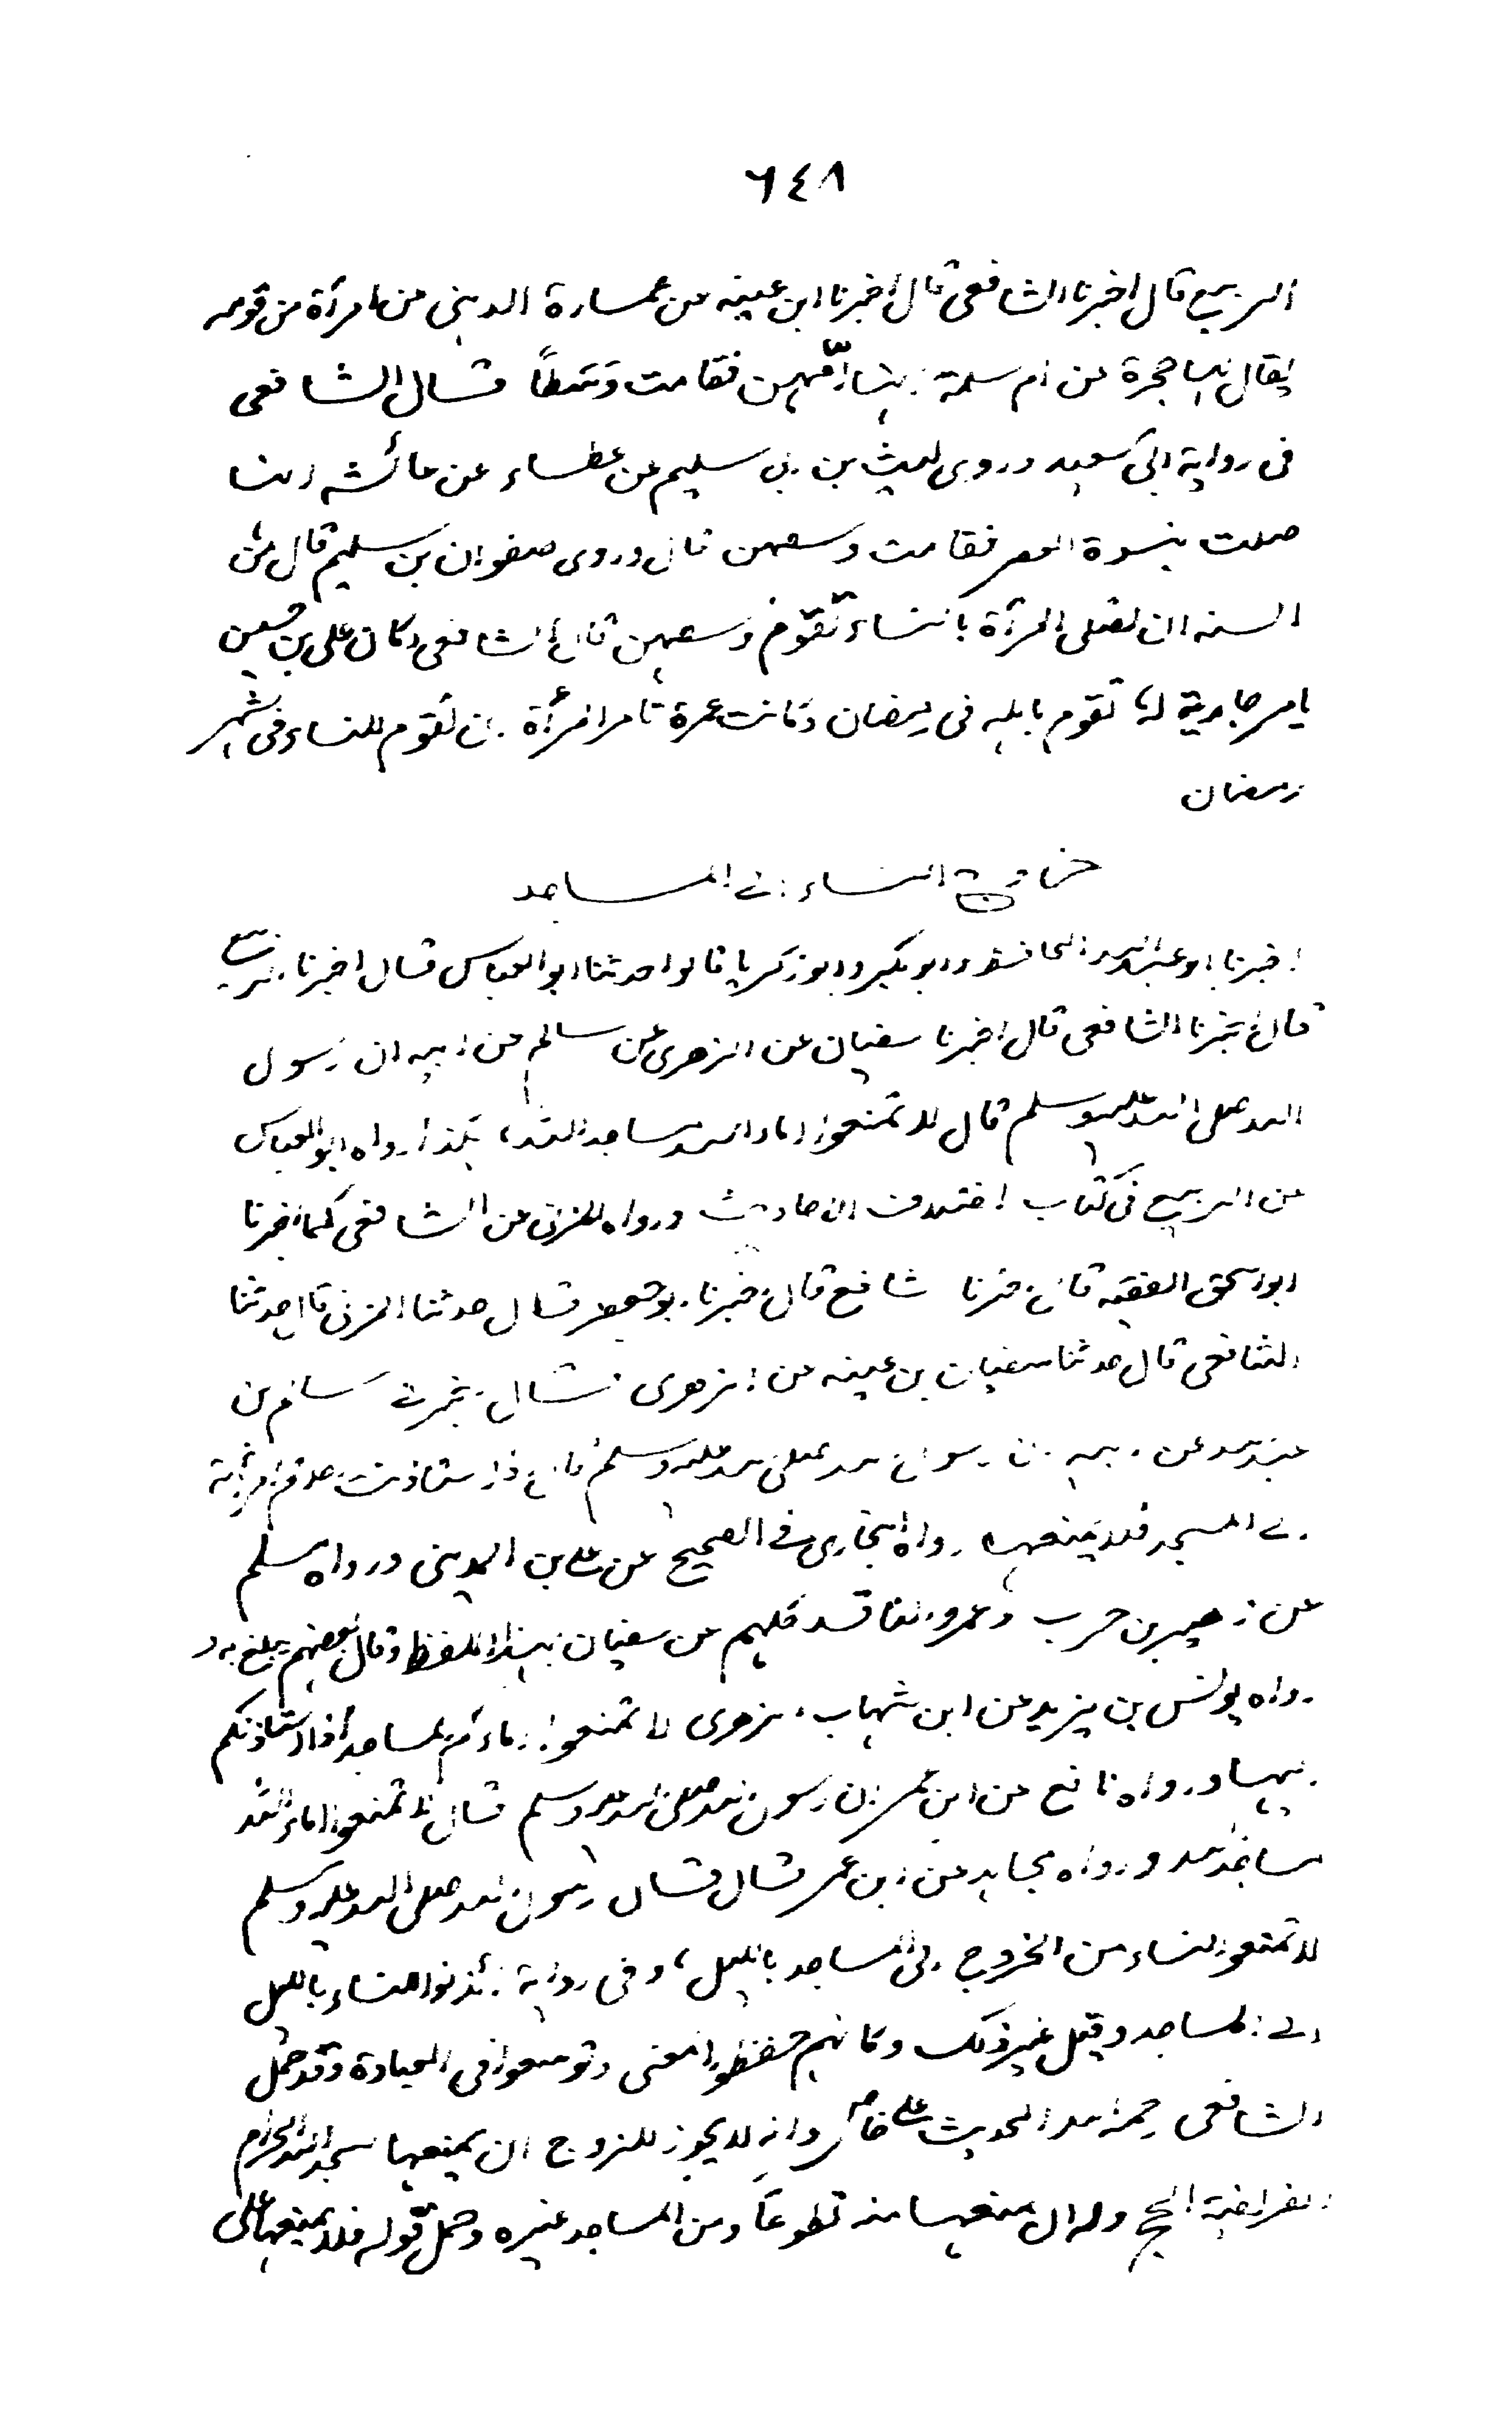 ٦٤٨
الربيع قال اخبرنا الشافعى قال اخبرنا ابن عيينه عن عمارة الدهنى عن امرأة من قومه
يقال لها حجرة عن ام سلمة انها أمّتهن فقامت وَسَطاً قال الشافعى
فى رواية ابى سعيد وروى ليث بن ابى سليم عن عطاء عن عائشه انها
صلت بنسوة العصر فقامت وسطهن قال وروى صفوان بن سليم قال من
السنه ان تصلى المرأة بالنساء تقوم وسطهن قال الشافعى وكان على بن حسين
يامر جارية له تقوم باهله فى رمضان وكانت عمرة تامر امرأة ان تقوم للنساء فى شهر
رمضان
خروج النساء الى المساجد
اخبرنا ابو عبد الله الحافظ وابو بكر وابو زكريا قالوا حدثنا ابو العباس قال اخبرنا الربيع
قال اخبرنا الشافعى قال اخبرنا سفيان عن الزهرى عن سالم عن ابيه ان رسول
الله صلى الله عليه وسلم قال لا تمنعوا اماء الله مساجد الله، هكذا رواه ابو العباس
عن الربيع فى كتاب اختلاف الاحاديث ورواه المزنى عن الشافعى كما اخبرنا
ابو اسحق الفقيه قال اخبرنا شافع قال اخبرنا ابو جعفر قال حدثنا المزنى قال حدثنا
الشافعى قال حدثنا سفيان بن عيينه عن الزهرى قال اخبرنى سالم بن
عبد الله عن ابيه ان رسول الله صلى الله عليه وسلم قال اذا استاذنت احدكم امرأته
الى المسجد فلا يمنعها رواه البخارى فى الصحيح عن على بن المدينى ورواه مسلم
عن زهير بن حرب وعمرو الناقد كلهم عن سفيان بهذا اللفظ وقال بعضهم يبلغ به و
رواه يونس بن يزيد عن ابن شهاب الزهرى لا تمنعوا نساءكم المساجد اذا استاذنكم
اليها ورواه نافع عن ابن عمر ان رسول الله صلى الله عليه وسلم قال لا تمنعوا اماء الله
مساجد الله ورواه مجاهد عن ابن عمر قال قال رسول الله صلى الله عليه وسلم
لا تمنعوا النساء من الخروج الى المساجد بالليل، وفى رواية ائذنوا للنساء بالليل
الى المساجد وقيل غير ذلك وكانهم حفظوا المعنى وتوسعوا فى العبادة وقد حمل
الشافعى رحمه الله الحديث على خاص وانه لا يجوز للزوج ان يمنعها مسجد الله الحرام
لفريضة الحج وله ان يمنعها منه تطوعاً ومن المساجد غيره وحمل قوله فلا يمنعها على